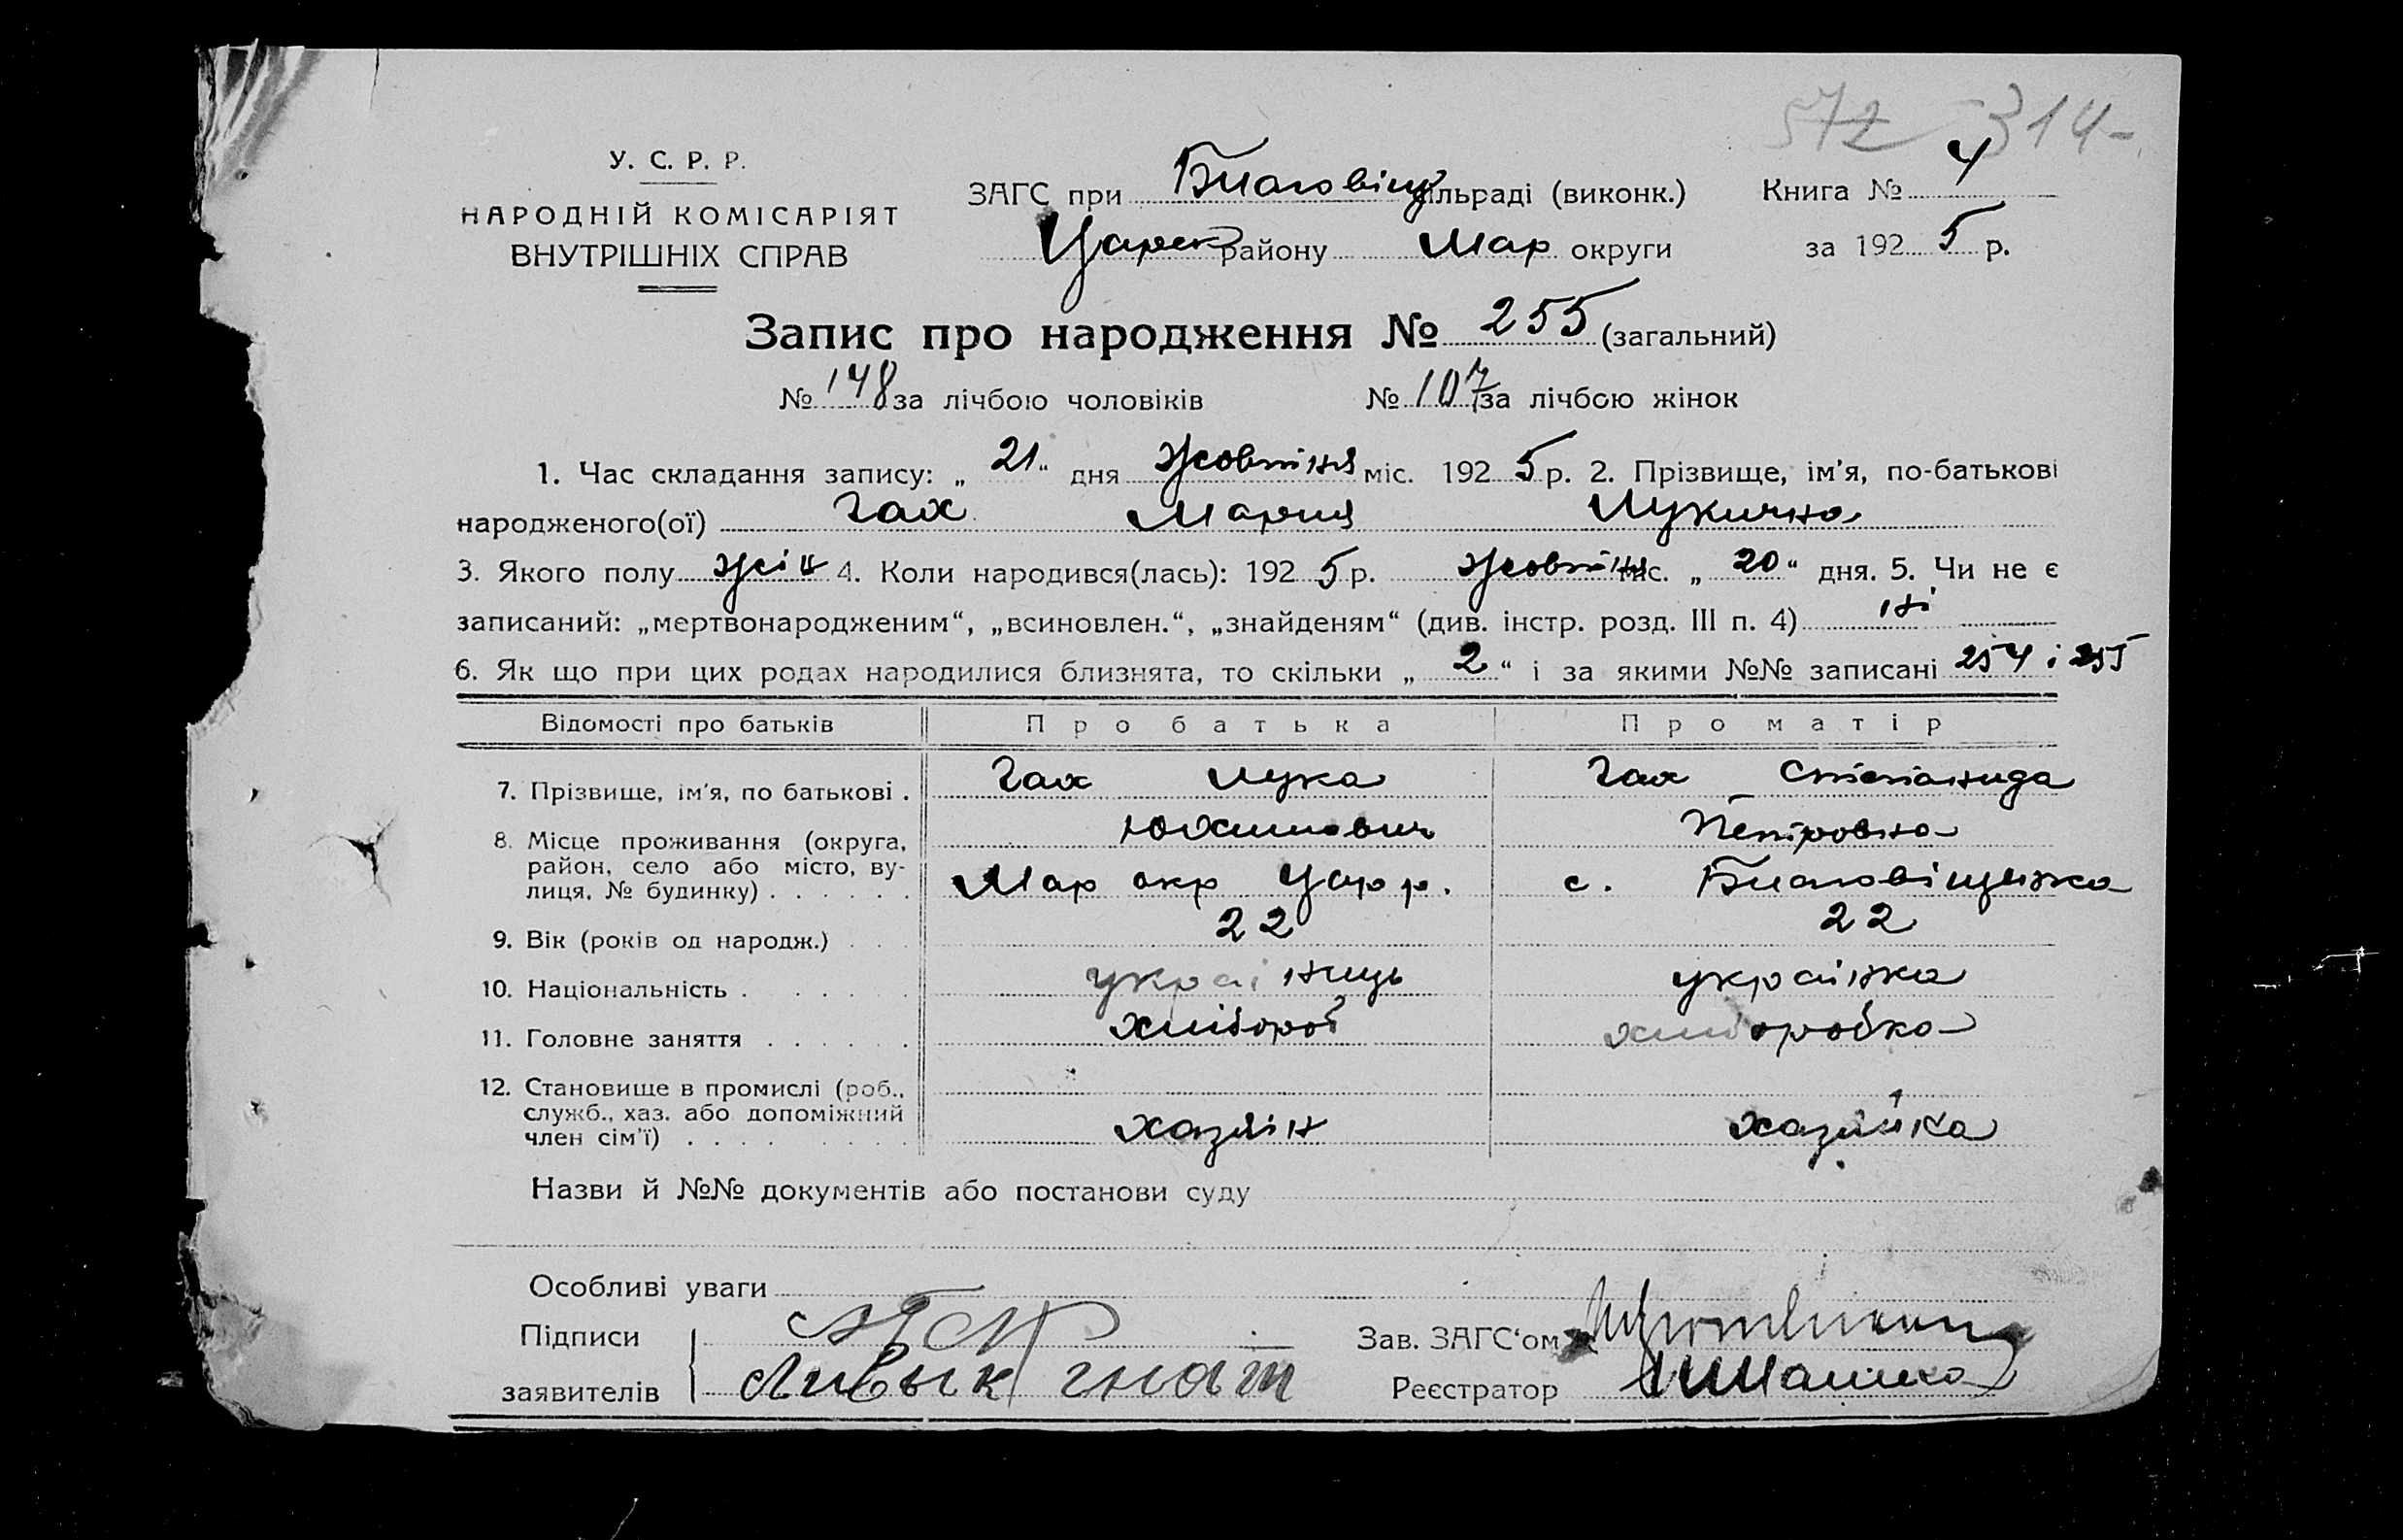 572 314-
У. С. Р. Р.
НАРОДНІЙ КОМІСАРІЯТ
ВНУТРІШНІХ СПРАВ
ЗАГС при Благовіщ сільраді (виконк.) Книга № 4
Царек району Мар округи за 1925 р.
Запис про народження № 255 (загальний)
№ 148 за лічбою чоловіків № 107 за лічбою жінок
1. Час складання запису: „21“ дня Жовтня міс. 1925 р. 2. Прізвище, ім'я, по-батькові
народженого(ої) Гах Мария Лукична
3. Якого полу жін 4. Коли народився(лась): 1925 р. Жовтня міс. „20“ дня. 5. Чи не є
записаний: „мертвонародженим“, „всиновлен.“, „знайденям“ (див. інстр. розд. III п. 4) ні
6. Як що при цих родах народилися близнята, то скільки „2“ і за якими №№ записані 254 і 255
Відомості про батьків Про батька Про матір
7. Прізвище, ім'я, по батькові . Гах Лука Гах Степанида
Юхимович Петровна
8. Місце проживання (округа,
район, село або місто, ву-
лиця, № будинку) . . . . . . Мар окр Цар р. с. Благовіщенка
9. Вік (років од народж.) . . . 22 22
10. Національність . . . . . . україниць українка
11. Головне заняття . . . . . . хлібороб хлиборобка
12. Становище в промислі (роб.,
служб., хаз. або допоміжний
член сім'ї) . . . . . . . . хазяїн хазяйка
Назви й №№ документів або постанови суду
Особливі уваги
Підписи
заявителів Гнат
Зав. ЗАГС‘ом
Реєстратор